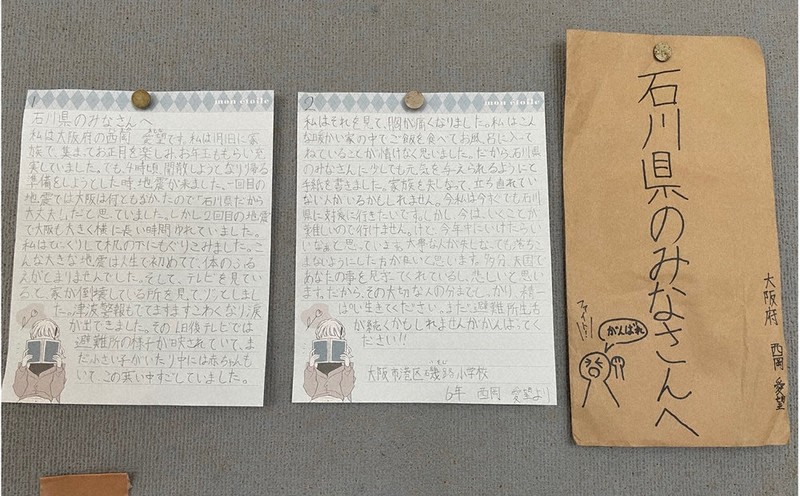 1
mon etoile
石川県のみなさんへ
私は大阪府の西岡 愛望です。私は1月1日に家
族で、集まってお正月を楽しみ、お年玉ももらい充
実していました。でも、4時頃、開散しようとなり帰る
準備をしようとした時、地震が来ました。一回目の
地震では大阪は何ともなかったので「石川県だから
大丈夫」だと思っていました。しかし2回目の地震
で大阪も大きく横に長い時間ゆれていました。
私はびっくりして机の下にもぐりこみました。こ
んな大きな地震は人生で初めてで、体のふる
えがとまりませんでした。そして、テレビを見てい
ると、家が倒壊している所を見て、ゾッとしまし
た。津波警報もでてますますこわくなり、涙
が出てきました。その1日後テレビでは
避難所の様子が映されていて、ま
だ小さい子がいたり中には赤ちゃんも
いて、この寒い中すごしていました。
2
mon etoile
私はそれを見て、胸が痛くなりました。私はこん
な暖かい家の中でご飯を食べてお風呂に入って
ねていることが情けなく思いました。だから、石川県
のみなさんに少しでも元気を与えられるようにと
手紙を書きました。家族を失なって、立ち直れてい
ない人がいるかもしれません。今私は今すぐでも石川
県に対食に行きたいです。しかし、今は、いくことが
難しいので行けません。けど、今年中にいけたらい
いなぁと思っています。大事な人が失しなっても落ちこ
まないようにした方が良いと思います。多分、天国で
あなたの事を見守ってくれているし、悲しいと思い
ます。だから、その大切な人の分までしっかり、精一
ぱい生きてください。まだ避難所生活
が続くかもしれませんががんばってく
ださい!!
大阪市港区磯路小学校
6年 西岡 愛望より
石川県のみなさんへ
大阪府 西岡 愛望
ファイト!
がんばれ